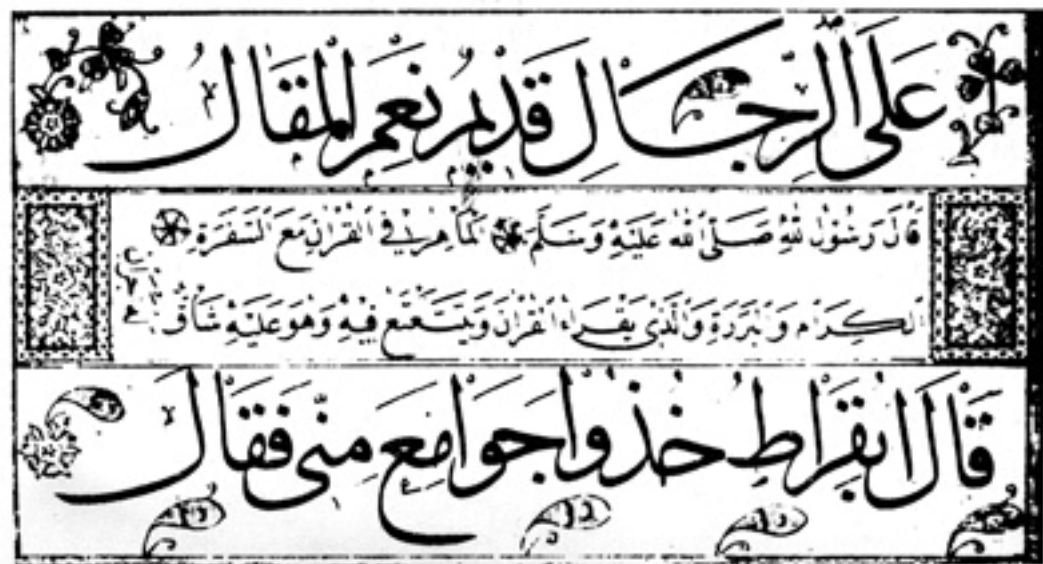 عَلَى الرِّجَالِ قَدِيمٌ نِعْمَ الْمَقَالُ
قَالَ رَسُولُ اللهِ صَلَّى اللهُ عَلَيْهِ وَسَلَّمَ الْمَاهِرُ فِي الْقُرْآنِ مَعَ السَّفَرَةِ
الْكِرَامِ وَالْبَرَرَةِ وَالَّذِي يَقْرَاءُ الْقُرْآنَ وَيَتَتَعْتَعُ فِيهِ وَهُوَ عَلَيْهِ شَاقٌّ
قَالَ ابُقِرَاطِ خُذُوا جَوَامِعَ مِنِّي فَقَالَ